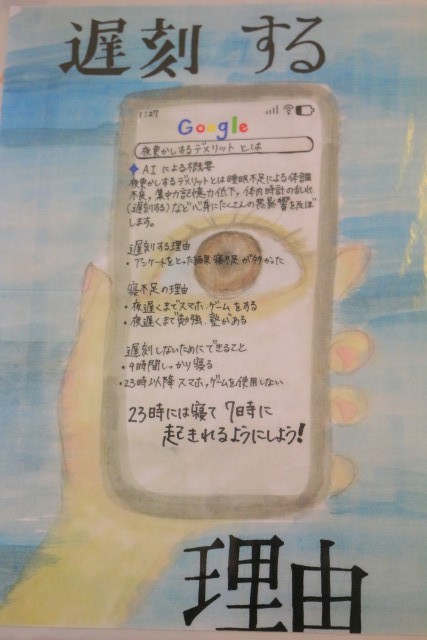 遅刻する
1:27
Google
夜更かしするデメリットとは
AIによる概要
夜更かしするデメリットとは睡眠不足による体調
不良、集中力記憶力低下、体内時計の乱れ
(遅刻する)など心身にたくさんの悪影響を及ぼ
します。
遅刻する理由
・アンケートをとった結果寝不足が多かった
寝不足の理由
・夜遅くまでスマホ、ゲームをする
・夜遅くまで勉強、塾がある
遅刻しないためにできること
・9時間しっかり寝る
・23時以降スマホ、ゲームを使用しない
23時には寝て7時に
起きれるようにしよう!
理由